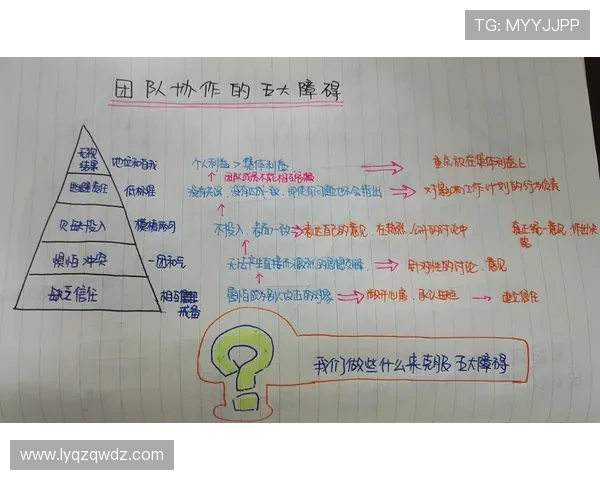 TG: MYYJJPP
团队协作的五大障碍
无视结果 地位和自我 个人利益 > 集体利益 重点放在集体利益上
团队成员不能相互
逃避责任 低标准 没有共识、没有达成一致，即使有问题也不会指出
欠缺投入 模棱两可 不投入，表面一致 表达自己的意见，在 公开的讨论中 真正统一意见，作出决策
惧怕冲突 一团和气 无法产生直接而激烈的思想交锋 针对性的讨论、意见
缺乏信任 相互戒备 害怕成为别人攻击的对象 敞开心扉，承认 建立信任
我们做些什么来克服五大障碍
www.lyqzqwdz.com